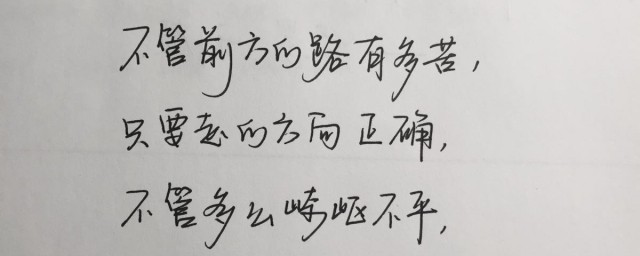 不管前方的路有多苦，
只要走的方向正确，
不管多么崎岖不平，